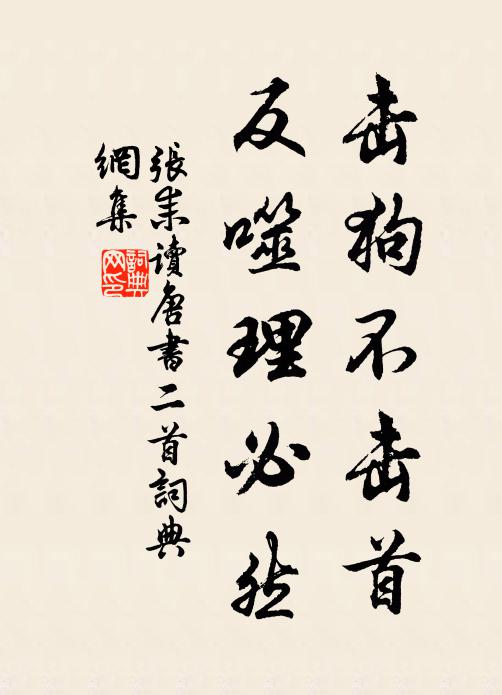 击狗不击首
反噬理必然
張耒讀唐書二首詞典
網集
詞典
网印